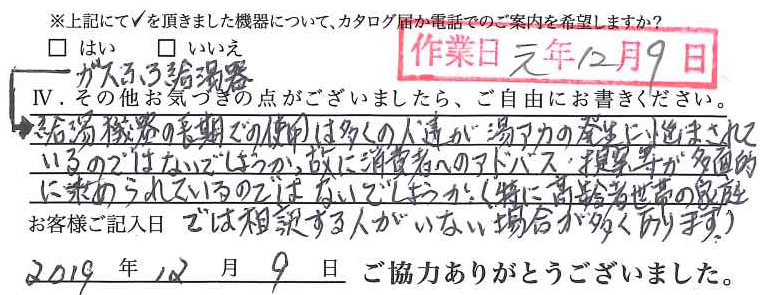 ※上記にて✓を頂きました機器について、カタログ届か電話でのご案内を希望しますか?
□ はい □ いいえ
作業日 元年12月9日
ガスふろ給湯器
Ⅳ．その他お気づきの点がございましたら、ご自由にお書きください。
給湯機器の長期での使用は多くの人達が湯アカの発生に悩まされて
いるのではないでしょうか。故に消費者へのアドバス・提案等が多面的
に求められているのではないでしょうか。(特に高齢者世帯の家庭
では相談する人がいない場合が多くあります)
お客様ご記入日
2019 年 12 月 9 日 ご協力ありがとうございました。